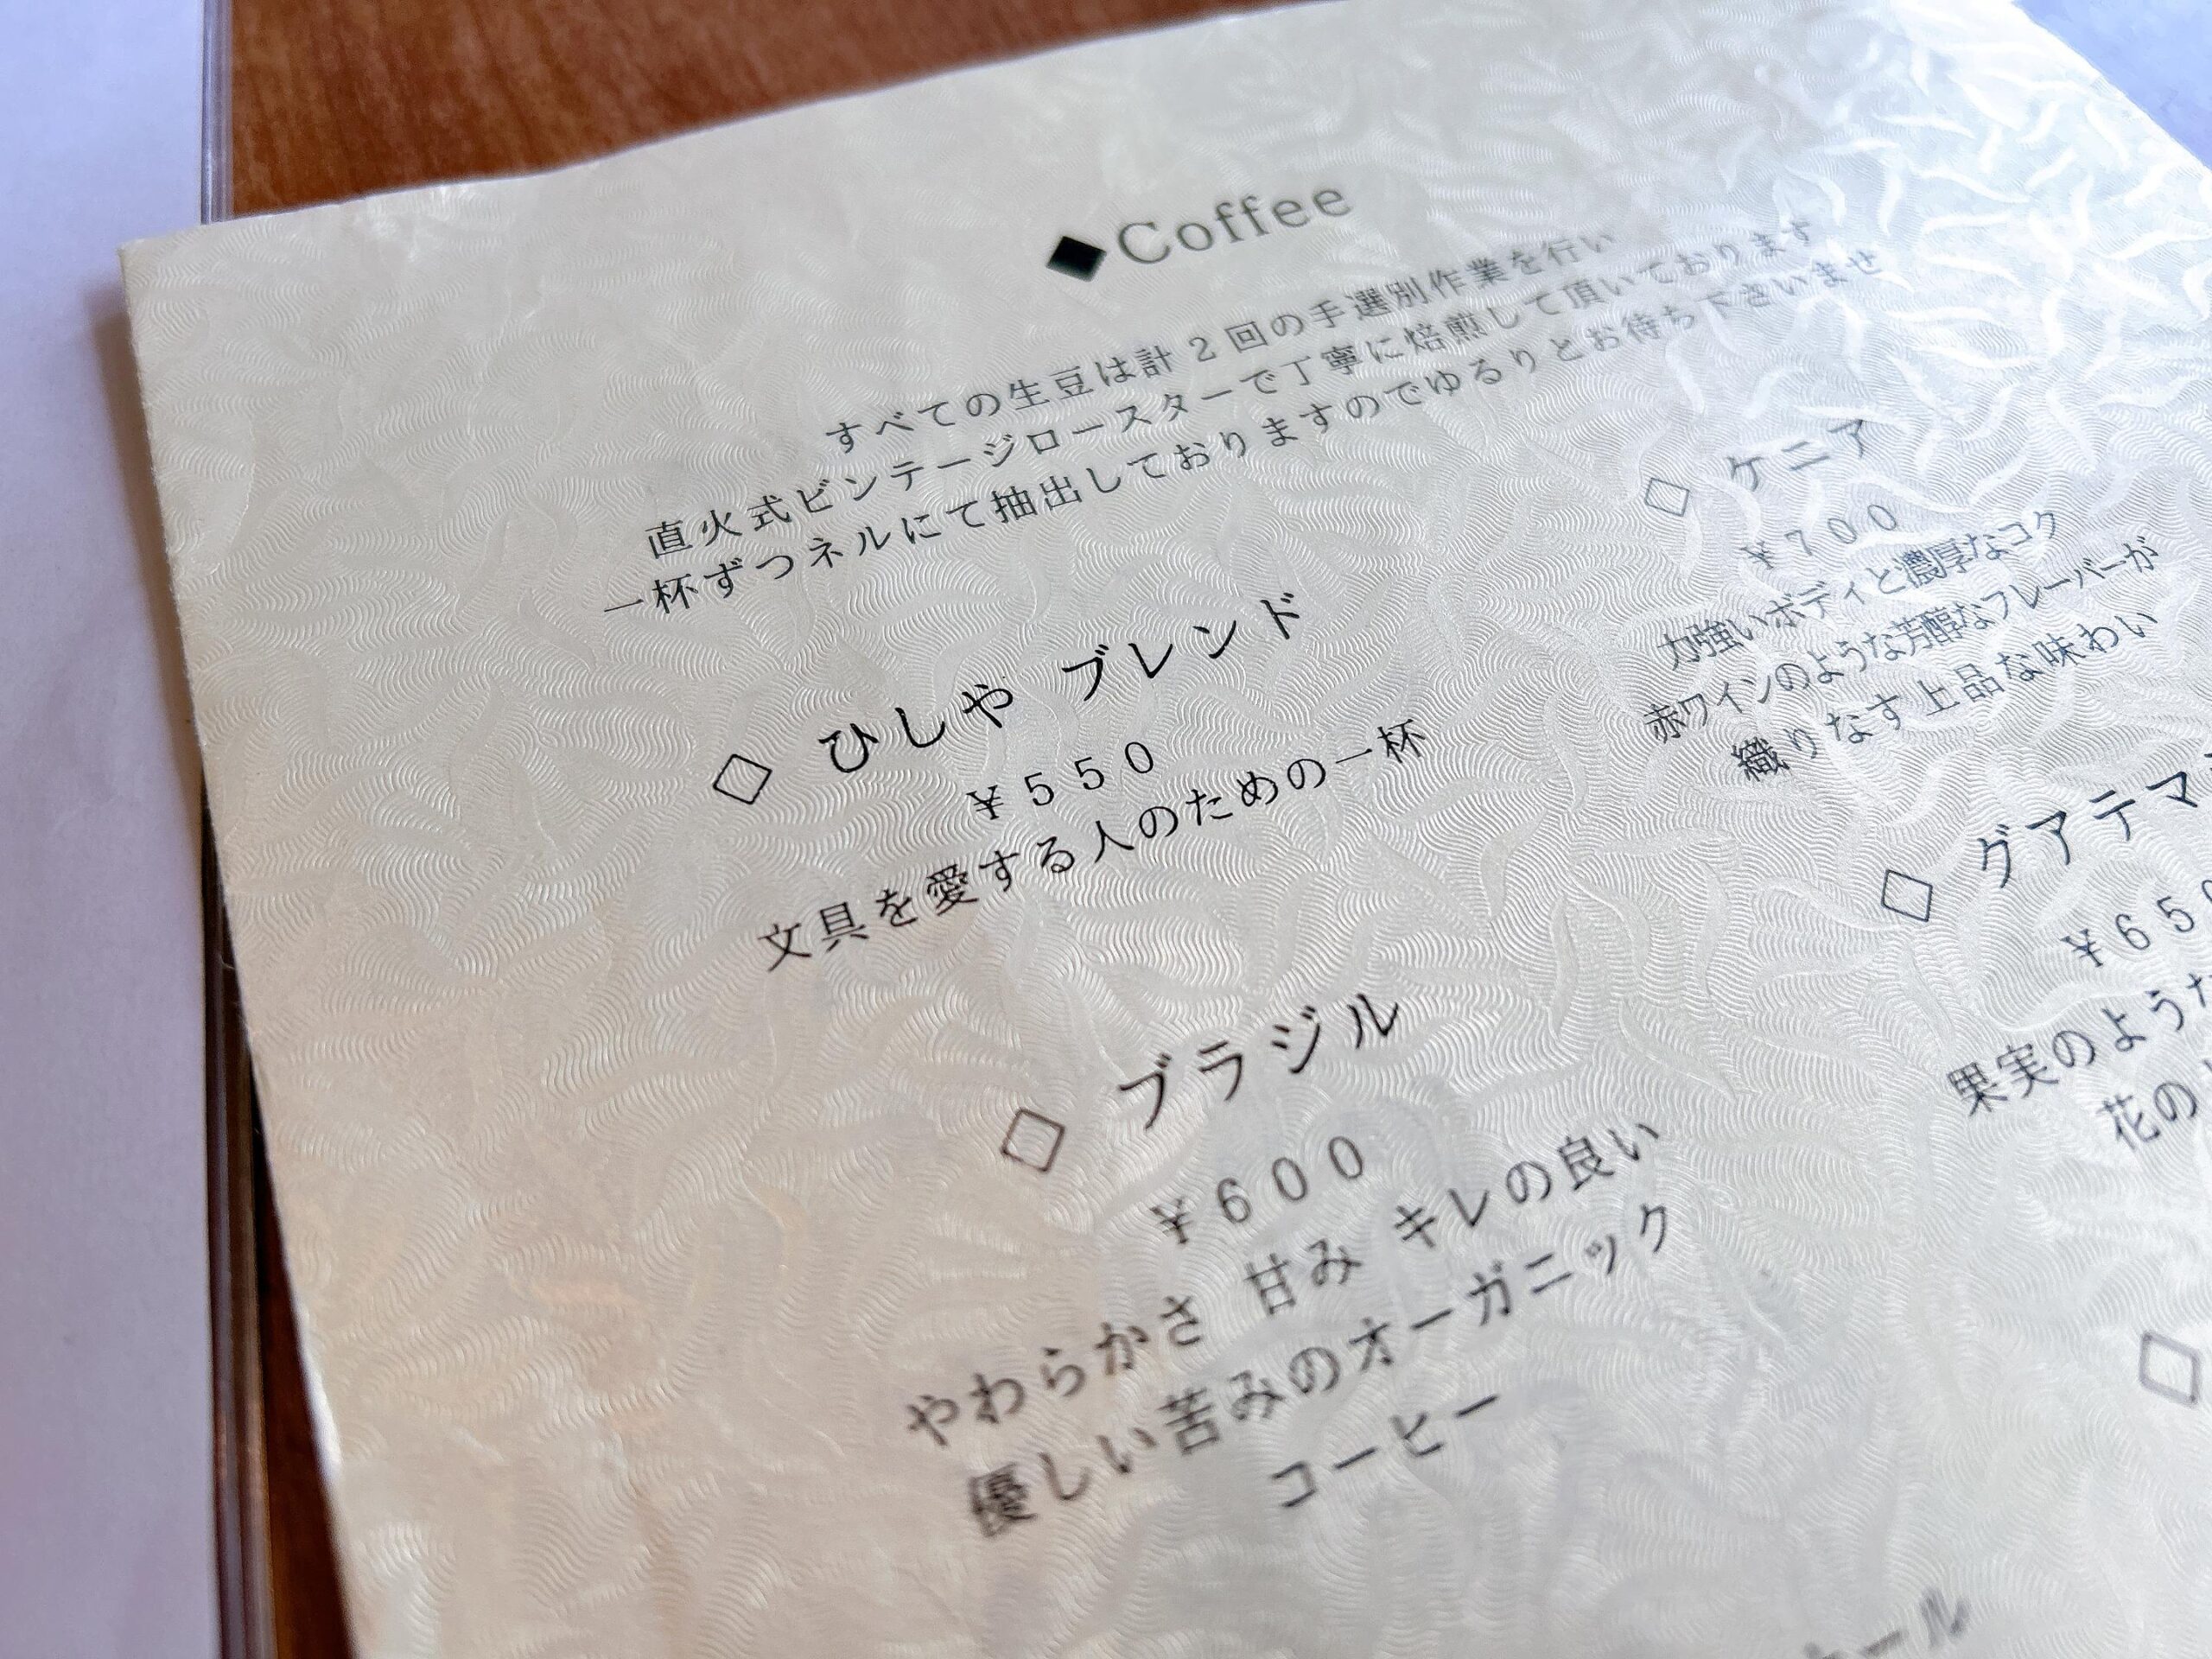 ◆Coffee
すべての生豆は計2回の手選別作業を行い
直火式ビンテージロースターで丁寧に焙煎して頂いております
一杯ずつネルにて抽出しておりますのでゆるりとお待ち下さいませ
◇ ひしや ブレンド
¥550
文具を愛する人のための一杯
◇ ブラジル
¥600
やわらかさ 甘み キレの良い
優しい苦みのオーガニック
コーヒー
◇ ケニア
¥700
力強いボディと濃厚なコク
赤ワインのような芳醇なフレーバーが
織りなす上品な味わい
◇ グアテマ
¥65
果実のような
花の
◇
ール